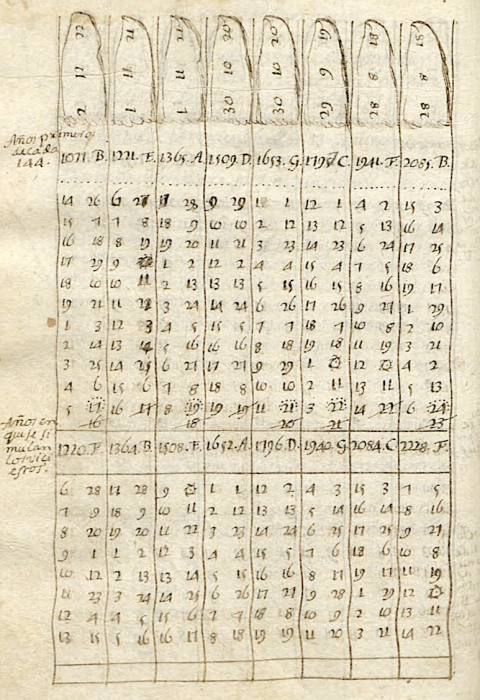 22 21 21 20 20 19 18 18
12 11 11 10 10 9 8 8
2 1 1 30 30 29 28 28
Años primeros
de cada
144.
1077. B. 1221. F. 1365. A. 1509. D. 1653. G. 1797 C. 1941. F. 2085. B.
14 26 6 27 17 28 9 29 1 12 1 4 2 15 3
15 7 7 8 18 9 10 10 2 12 13 12 5 13 16 14
16 18 8 19 19 20 11 21 3 23 14 23 6 24 17 25
17 29 9 1 2 12 2 4 4 15 4 7 5 18 6
18 10 10 11 2 13 13 13 5 15 16 15 8 16 19 17
19 21 11 22 3 24 14 24 6 26 17 26 9 27 1 29
1 3 12 3 4 5 15 5 7 7 18 7 10 8 2 10
2 14 13 14 5 16 16 16 8 18 19 18 11 19 3 21
3 25 14 25 6 27 17 27 9 29 1 12 4 2
4 6 15 6 7 8 18 8 10 10 2 11 13 11 5 13
5 17 16 17 8 19 19 19 11 21 3 22 14 22 6 24
16 18 20 21 23
Años en
que se si
mulan
los vici
estos.
1220. F. 1364. B. 1508. F. 1652. A. 1796. D. 1940. G. 2084. C. 2228. F.
6 28 17 28 9 1 1 12 2 4 3 15 3 7 5
7 9 18 9 10 11 2 12 13 13 5 14 16 14 8 16
8 20 19 20 11 22 3 23 14 24 6 25 17 25 9 27
9 1 1 2 12 3 4 4 15 5 7 6 18 6 10 8
10 12 2 13 13 14 5 15 16 16 8 17 19 17 11 19
11 23 3 24 14 25 6 26 17 27 9 28 1 29 12
12 4 4 5 15 6 7 7 18 8 10 9 2 10 13 11
13 15 5 16 16 17 8 18 19 19 11 20 3 21 14 22